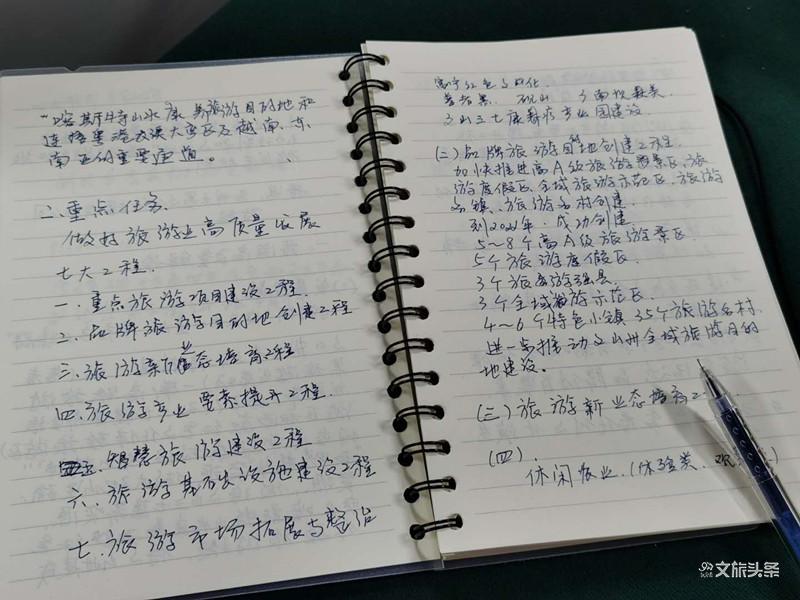 "喀斯特山水康养旅游目的地和
连接粤港澳大湾区及越南、东
南亚的重要通道。
二.重点任务
做好旅游业高质量发展
七大工程.
一.重点旅游项目建设工程.
二.品牌旅游目的地创建工程
三.旅游新业态培育工程
四.旅游产业要素提升工程.
五.智慧旅游建设工程
六.旅游基础设施建设工程
七.旅游市场拓展与整治
普者黑. 砚山
三七康养产业园建设.
(二)品牌旅游目的地创建工程.
加快推进高A级旅游景区、旅
游度假区、全域旅游示范区、旅游
名镇、旅游名村创建.
到2022年.成功创建.
5~8个高A级旅游景区.
5个旅游度假区.
3个旅游强县.
3个全域旅游示范区.
4~6个特色小镇 35个旅游名村.
进一步推动文山州全域旅游目的
地建设。
(三)旅游新业态培育工
(四).
休闲农业.(体验类.观
文旅头条